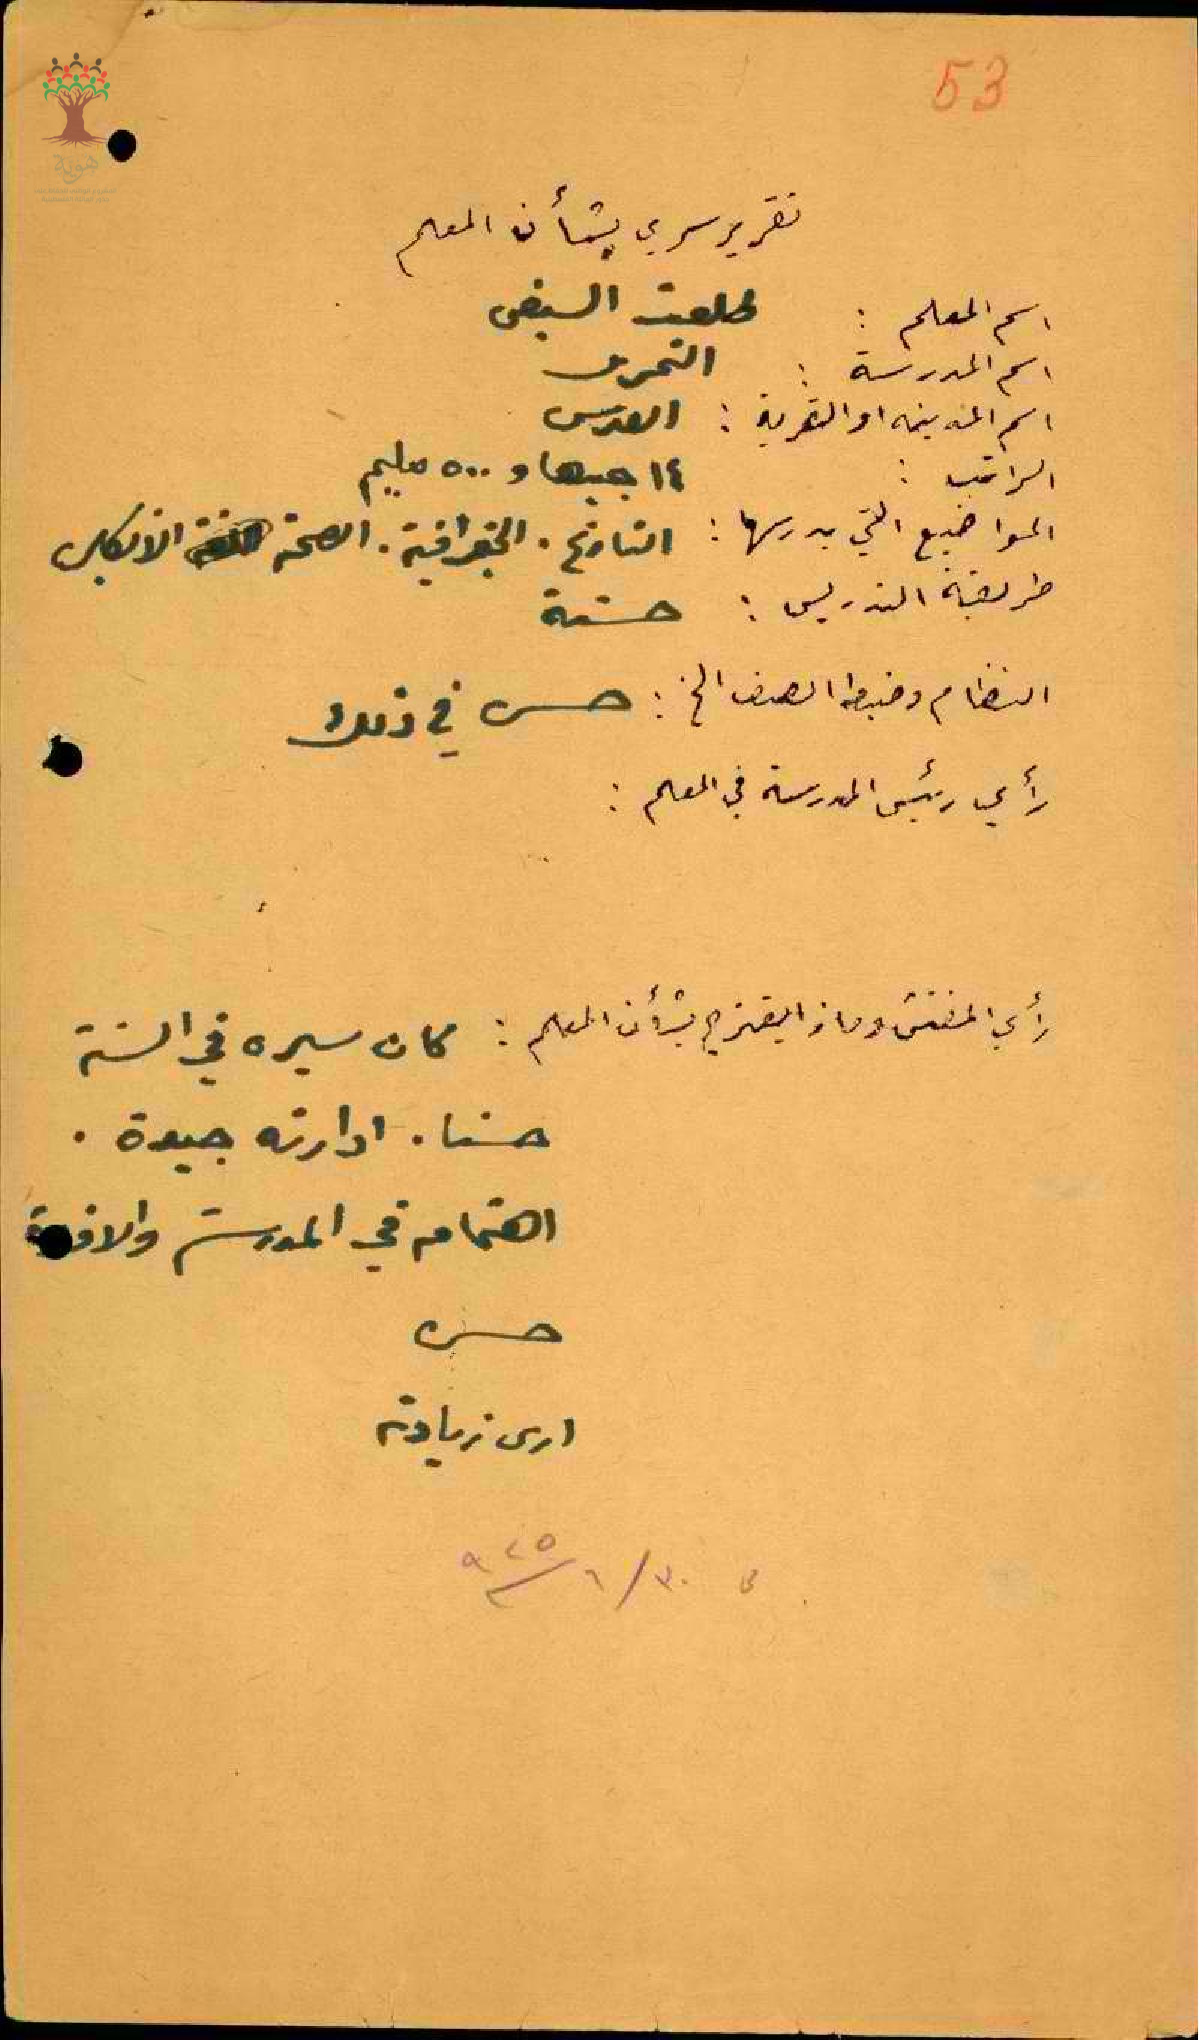 53
هوية
تقرير سري بشأن المعلم
اسم المعلم : طلعت السيفي
اسم المدرسة :
اسم المدينه او القرية : القدس
الراتب : ١٤ جنيها و ٥٠٠ مليم
المواضيع التي يدرسها : التاريخ . الجغرافية . الصحة
طريقة التدريس : حسنة
النظام وضبط الصف الخ : حسن في ذلك
رأي رئيس المدرسة في المعلم :
رأي المفتش وماذا يقترح بشأن المعلم : كان سيره في السنة
حسنا . ادارته جيدة .
اهتمامه في المدرسة
حسن
ارى زيادته
٣٠/٦/٩٢٥